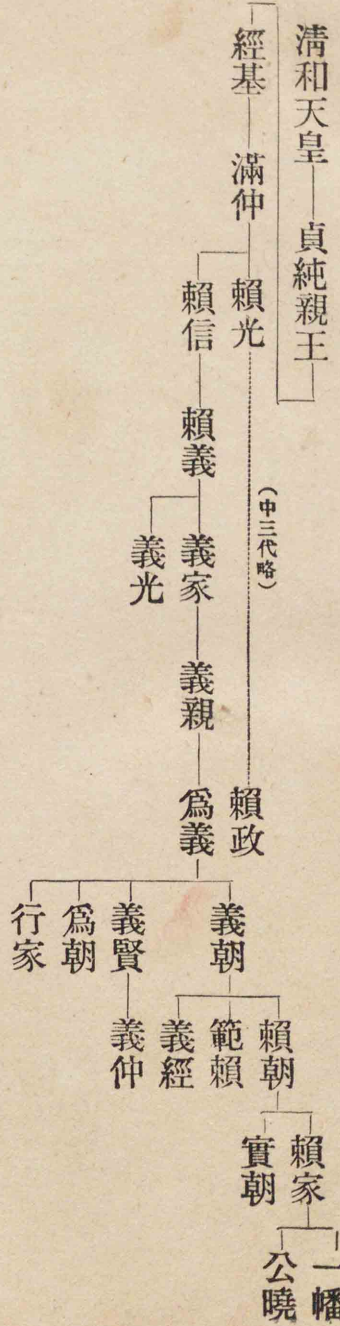 清和天皇
貞純親王
經基
滿仲
賴光
(中三代略)
賴政
賴信
賴義
義家
義光
義親
爲義
義朝
義賢
爲朝
行家
賴朝
範賴
義經
義仲
賴家
實朝
一幡
公曉